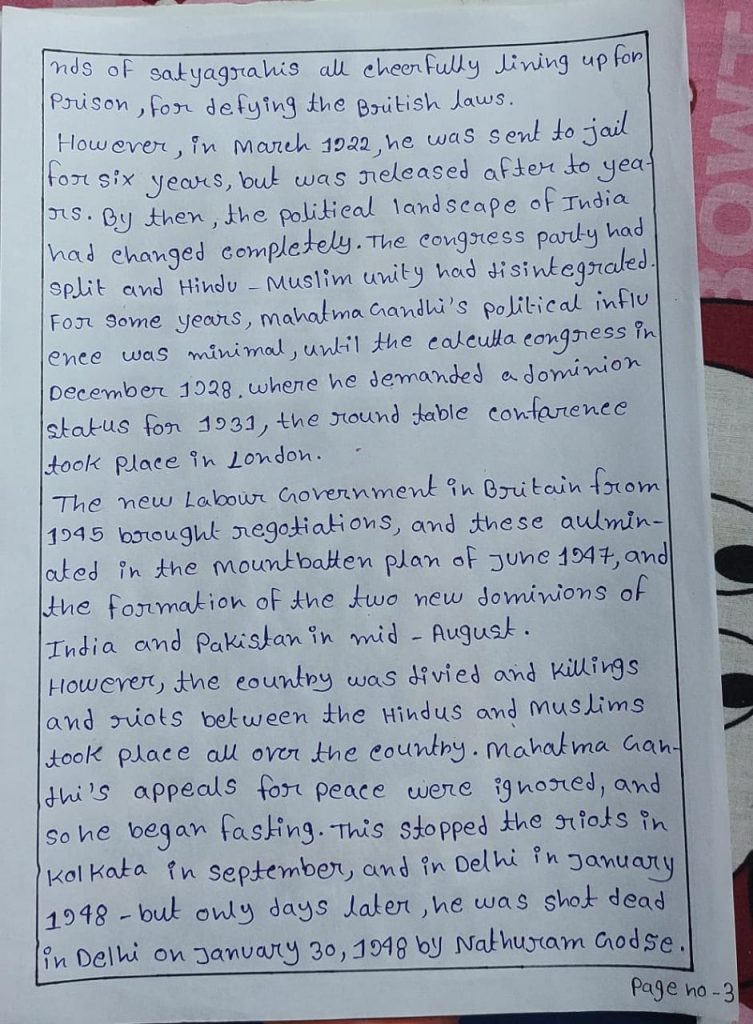 nds of satyagrahis all cheerfully lining up for
Prison, for defying the British laws.
However, in March 1922, he was sent to jail
for six years, but was released after to yea-
rs. By then, the political landscape of India
had changed completely. The congress party had
split and Hindu - Muslim unity had disintegrated.
For some years, Mahatma Gandhi's political influ
ence was minimal, until the calcutta congress in
December 1928. where he demanded a dominion
status for 1931, the round table confarence
took place in London.
The new Labour Government in Britain from
1945 brought negotiations, and these aulmin-
ated in the mountbatten plan of June 1947, and
the formation of the two new dominions of
India and Pakistan in mid - August.
However, the country was divied and killings
and riots between the Hindus and muslims
took place all over the country. Mahatma Gan-
dhi's appeals for peace were ignored, and
so he began fasting. This stopped the riots in
Kolkata in september, and in Delhi in January
1948 - but only days later, he was shot dead
in Delhi on January 30, 1948 by Nathuram Godse.
Page no - 3